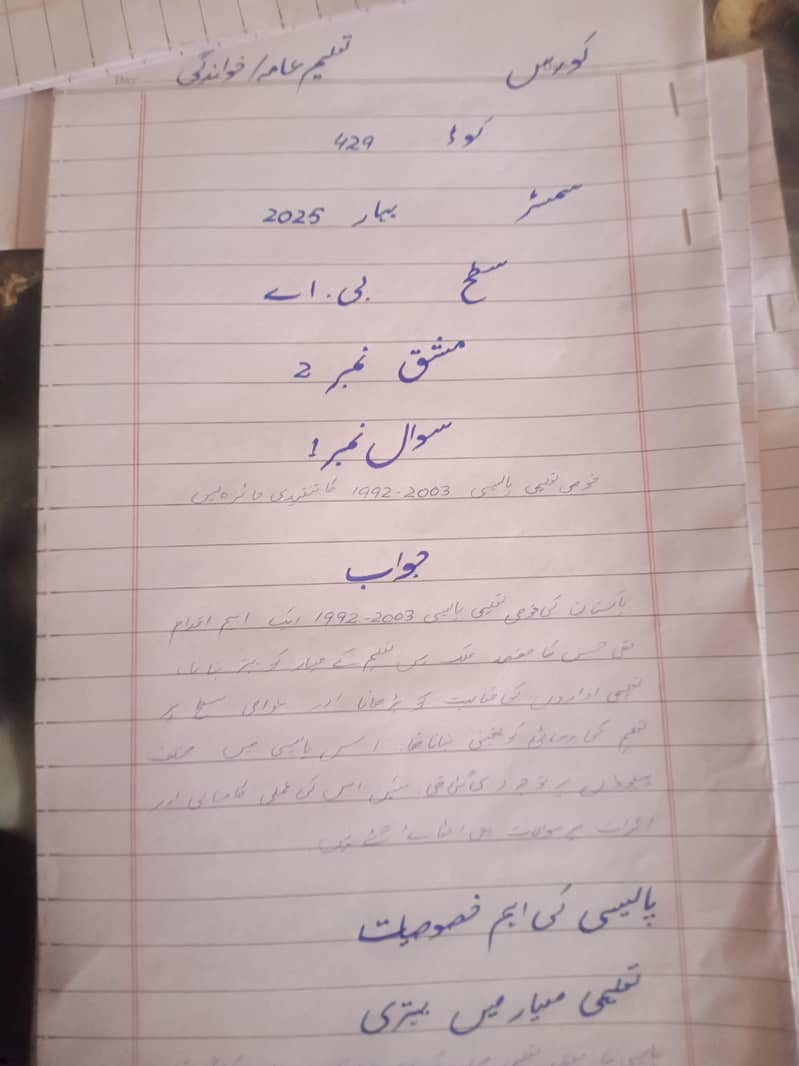 کورس تعلیم عامہ/خواندگی
کوڈ 429
سمسٹر بہار 2025
سطح بی.اے
مشق نمبر 2
سوال نمبر 1
قومی تعلیمی پالیسی 1992-2003 کا تنقیدی جائزہ لیں
جواب
پاکستان کی قومی تعلیمی پالیسی 1992-2003 ایک اہم اقدام
تھی جس کا مقصد ملک میں تعلیم کے معیار کو بہتر بنانا،
تعلیمی اداروں کی کو بڑھانا اور عوامی سطح پر
تعلیم کی رسائی کو یقینی بنانا تھا۔ اس پالیسی میں مختلف
پہلوؤں پر توجہ دی گئی تھی لیکن اس کی عملی کامیابی اور
اثرات پر سوالات بھی اٹھائے گئے ہیں
پالیسی کی اہم خصوصیات
تعلیمی معیار میں بہتری